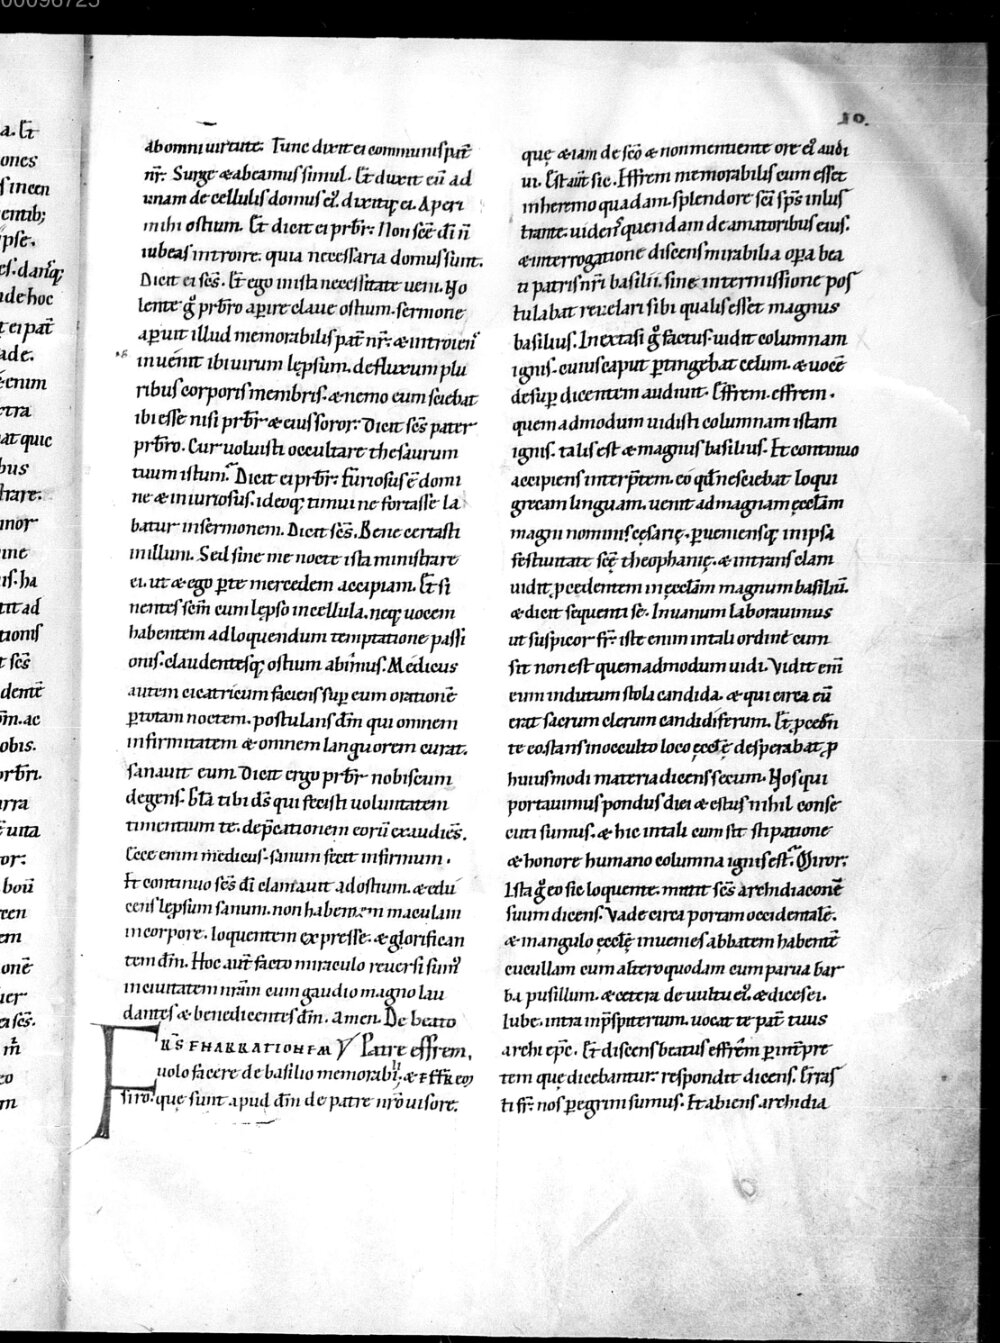 00098725
10.
ab omni uirtute. Tunc dixit ei communis pat̄
nr̄. Surge & abeamus simul. Et duxit eū ad
unam de cellulis domus ei᾿. dixitq; ei. Aperi
mihi ostium. Et dicit ei prb̄r. Non sc̄e dī n̄
iubeas introire. quia necessaria domus sunt.
Dicit ei sc̄s. Et ego in ista necessitate ueni. No
lente g̊ prb̄ro aperire claue ostium. sermone
aperuit illud memorabilis pat̄ nr̄. & introiens
inuenit ibi uirum lępsum. defluxum plu
ribus corporis membris. & nemo eum sciebat
ibi esse nisi prb̄r & eius soror. Dicit sc̄s pater
prb̄ro. Cur uoluisti occultare thesaurum
tuum istum. Dicit ei prb̄r. Furiosus ē domi
ne & iniuriosus. ideoq; timui ne fortasse la
batur in sermonem. Dicit sc̄s. Bene certasti
in illum. Sed sine me nocte ista ministrare
ei. ut & ego p̱ te mercedem accipiam. Et si
nentes sc̄m cum lępso in cellula. neq; uocem
habentem ad loquendum temptatione passi
onis. claudentesq; ostium abiimus. Medicus
autem cicatricum faciens sup̱ eum orationē
p̱ totam noctem. postulans dn̄m qui omnem
infirmitatem & omnem languorem curat.
sanauit eum. Dicit ergo prb̄r nobiscum
degens. Bt̄a tibi ds̄ qui fecisti uoluntatem
timentium te. dep̄cationem eorū exaudies.
Ecce enim medicus. sanum fecit infirmum.
Et continuo sc̄s dī clamauit ad ostium. & edu
cens lępsum sanum. non habentem maculam
in corpore. loquentem expresse. & glorifican
tem dn̄m. Hoc aut̄ facto miraculo reuersi sum᾿
in ciuitatem nr̄am cum gaudio magno lau
dantes & benedicentes dn̄m. amen. De beato
FRS̄ ENARRATIONEM Patre effrem,
uolo facere de basilio memorabili. & effrē eo
siro. que sunt apud dn̄m de patre nr̄o uisore.
quę & iam de sc̄o & non mentiente ore ei᾿ audi
ui. Est aut̄ sic. Effrem memorabilis cum esset
in heremo quadam. splendore sc̄i sp̄s inlus
trante. uidens quendam de amatoribus eius.
& interrogatione discens mirabilia op̱a bea
ti patris nr̄i basilii. sine intermissione pos
tulabat reuelari sibi qualis esset magnus
basilius. In extasi g̊ factus. uidit columnam
ignis. cuius caput p̱tingebat celum. & uocē
desup̱ dicentem audiuit. Effrem. effrem.
quemadmodum uidisti columnam istam
ignis. talis est & magnus basilius. Et continuo
accipiens interp̄tem. eo qd̄ nesciebat loqui
grecam linguam. uenit ad magnam ęccl̄am
magni nominis cęsarię. p̱ueniensq; in ipsa
festiuitate sc̄ę theophanię. & intrans clam
uidit p̱cedentem in ęccl̄am magnum basiliū.
& dicit sequenti se. In uanum laborauimus
ut suspicor fr̄. iste enim in tali ordine cum
sit non est quemadmodum uidi. Vidit eni̅
eum indutum stola candida. & qui circa eū
erat sacrum clerum candidis̄trum. Et p̱ cedn̄
te eo stans in occulto loco ęccl̄ę desperabat p̱
huiusmodi materia dicens secum. Nos qui
portauimus pondus diei & estus nihil conse
cuti sumus. & hic in tali cum sit stipatione
& honore humano columna ignis est. Miror.
Ista g̊ eo sic loquente. mittit sc̄s archidiaconē
suum dicens. Vade circa portam occidentalē.
& in angulo ęccl̄ę inuenies abbatem habentē
cucullam cum altero quodam cum parua bar
ba pusillum. & cetera de uultu ei᾿. & dices ei.
Iube. intra in p̄sp̱iterium. uocat te pat̄ tuus
archiepc̄. Et discens beatus effrēm p̱ int̄pre
tem quę dicebantur. respondit dicens. Erras
ti fr̄. nos p̱egrini sumus. Et abiens archidia